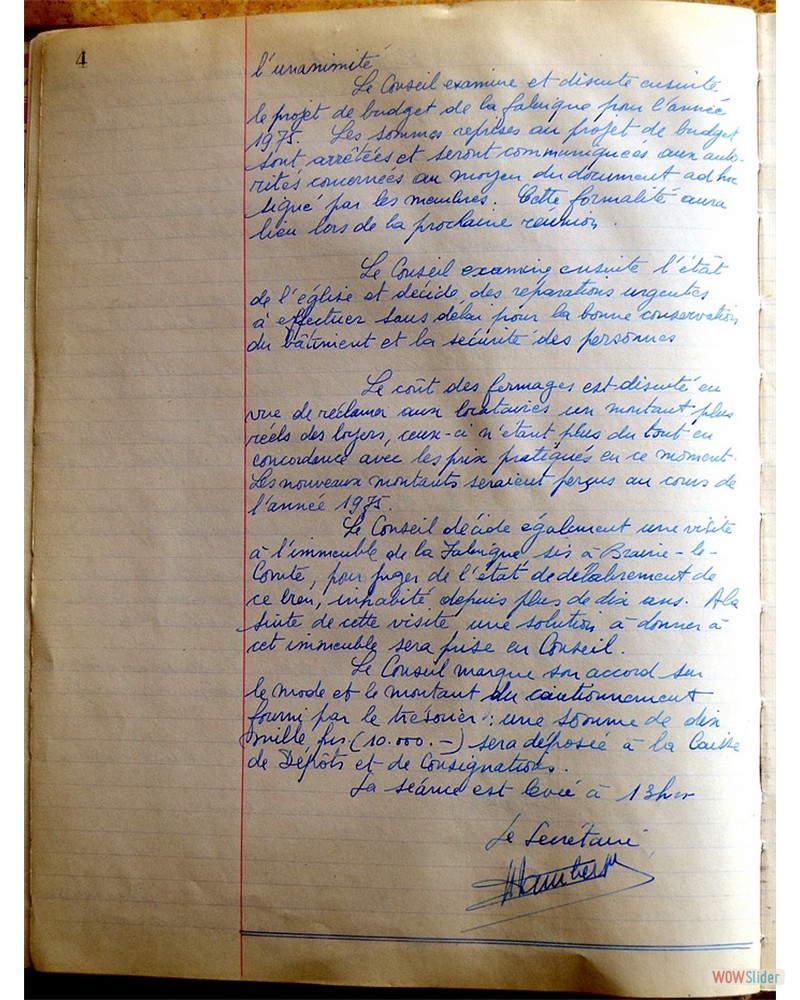 4
l'unanimité
Le Conseil examine et discute ensuite
le projet de budget de la fabrique pour l'année
1975. Les sommes reprises au projet de budget
sont arrêtées et seront communiquées aux auto-
rités concernées au moyen du document ad hoc
signé par les membres. Cette formalité aura
lieu lors de la prochaine réunion.
Le Conseil examine ensuite l'état
de l'église et décide des réparations urgentes
à effectuer sans délai pour la bonne conservation
du bâtiment et la sécurité des personnes
Le coût des fermages est discuté en
vue de réclamer aux locataires un montant plus
réels des loyers, ceux-ci n'étant plus du tout en
concordance avec les prix pratiqués en ce moment.
Les nouveaux montants seraient perçus au cours de
l'année 1975.
Le Conseil décide également une visite
à l'immeuble de la Fabrique sis à Braine-le-
Comte, pour juger de l'état de délabrement de
ce bien, inhabité depuis plus de dix ans. A la
suite de cette visite une solution à donner à
cet immeuble sera prise en Conseil.
Le Conseil marque son accord sur
le mode et le montant du cautionnement
fourni par le trésorier : une somme de dix
mille frs (10.000.-) sera déposée à la Caisse
de Dépôts et de Consignations.
La séance est levée à 13hrs
Le Secrétaire
WOWSlider